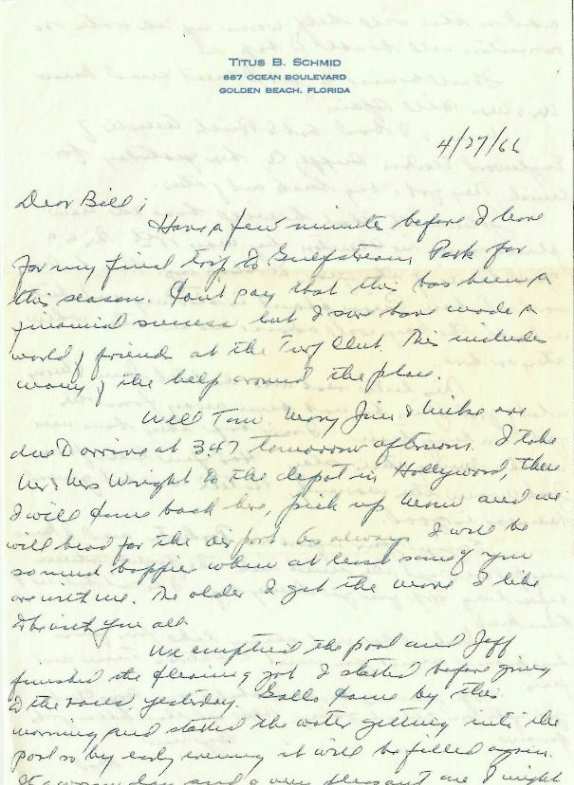 TITUS B. SCHMID
687 OCEAN BOULEVARD
GOLDEN BEACH, FLORIDA
4/27/66
Dear Bill;
Have a few minute before I leave
for my final trip to Gulfstream Park for
this season. Can't say that this has been a
financial success but I sure have made a
world of friends at the Turf Club. This includes
many of the help around the place.
Well Tom. Mary Jim & Mike are
due to arrive at 347 tomorrow afternoon. I take
Mr & Mrs Wright to the depot in Hollywood, then
I will come back here, pick up and we
will head for the airport. As always I will be
so much happier when at least some of you
are with me. The older I get the more I like
to be with you all.
We emptied the pool and Jeff
finished the cleaning job I started before going
to the races, yesterday. came by this
morning and started the water getting into the
pool so by early evening it will be filled again.
It's a warm day and a very pleasant one I might